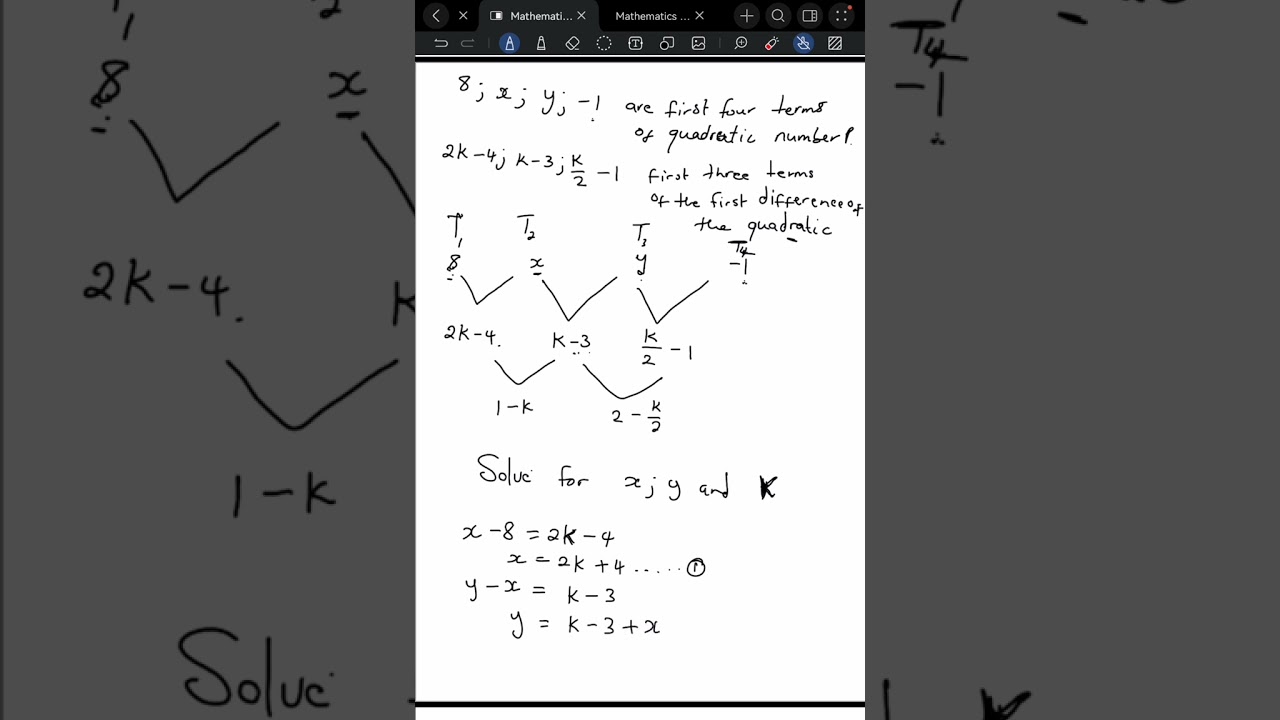 Mathemati...
Mathematics ...
8; x; y; -1 are first four terms
of quadratic number P.
2K-4; K-3; K/2 -1 first three terms
of the first difference of
the quadratic
T1 T2 T3 T4
8 x y -1
2K-4. K-3 K/2 -1
1-K 2 - K/2
Solve for x; y and K
x-8 = 2K-4
x = 2K+4 ..... ①
y-x = K-3
y = K-3+x
T1 T2 T4
8 x -1
2K-4. K
1-K
Solve